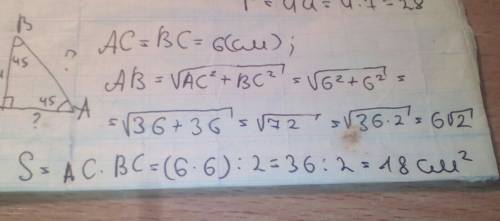 P = 4a = 4·7 = 28
B
45
?
45
A
?
AC = BC = 6(см);
AB = √AC² + BC² = √6² + 6² =
= √36 + 36 = √72 = √36·2 = 6√2
S = AC · BC = (6·6) : 2 = 36 : 2 = 18 см²